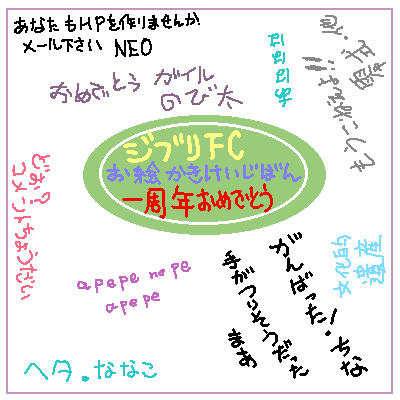 あなたもHPを作りませんか
メール下さい NEO
おめでとう ガイル
のび太
ジブリFC
お絵かきけいじばん
一周年おめでとう
どお?
コメントちょうだい
apepe nepe
apepe
がんばった!ちな
手がつりそうだった
まあ
文化的
遺産
ヘタ。ななこ